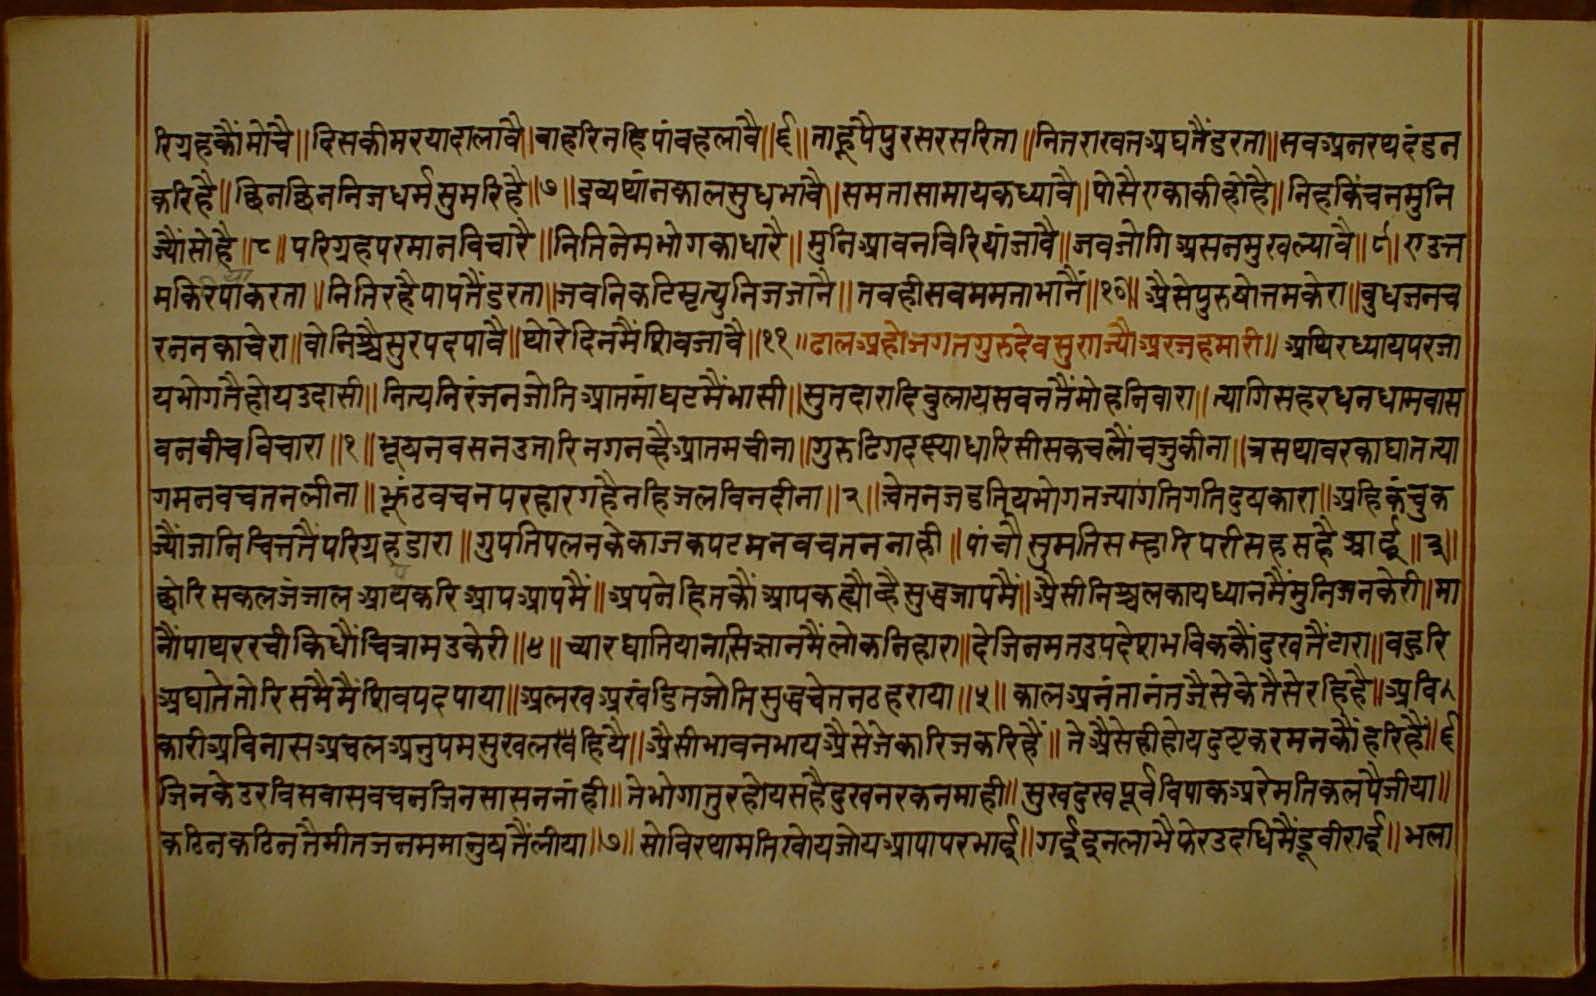 रिग्रहकौंमोचै॥दिसकीमरयादालावै॥बाहरिनहिपांवहलावै॥६॥ताहूंपैपुरसरसरिता॥नितराखतअघतैंडरता॥सवअनरथदंडन
करिहै॥छिनछिननिजधर्मसुमरिहै॥७॥द्रव्यथांनकालसुधभावै॥समतासामायकध्यावै॥पोसैएकाकीह्वोहै॥निहकिंचनमुनि
ज्यौंसोहै॥८॥परिग्रहपरमानविचारै॥नितिनेमभोगकाधारै॥मुनिआवनविरियांजावै॥जवजोगिअसनमुखल्यावै॥९॥एउत्त
मकिरियाकरता॥नितिरहैपापतैंडरता॥जवनिकटिमृत्युनिजजानै॥तवहीसवममताभांनै॥१०॥ऐसेपुरुषोत्तमकेरा॥वुधजनच
रननकाचेरा॥वोनिश्चैसुरपदपावै॥थोरेदिनमैंशिवजावै॥११॥ढालअहोजगतगुरुदेवसुराज्यौअरजहमारी॥अथिरध्यायपरजा
यभोगतैहोयउदासी॥नित्यनिरंजनजोतिआतमांघटमैंभासी॥सुतदारादिवुलायसवनतैंमोहनिवारा॥त्यागिसहरधनधामवास
वनवीचविचारा॥१॥भूषनवसनउतारिनगनव्हैआतमचीना॥गुरुढिगदक्ष्याधारिसीसकचलौंचजुकीना॥त्रसथावरकाघातत्या
गमनवचतनलीना॥झूंठवचनपरहारगहैनहिजलविनदीना॥२॥चेतनजडत्रियभोगतज्यागतिगतिदुयकारा॥अहिकंचुक
ज्यौंजानिचित्ततैंपरिग्रहडारा॥गुपतिपलनकेकाजकपटमनवचतननाही॥पांचौसुमतिसम्हारिपरीसहसहैआई॥३॥
छोरिसकलजंजालआपकरिआपआपमैं॥अपनेहितकौंआपकह्यौव्हैसुद्धजापमैं॥ऐसीनिश्चलकायध्यानमैंमुनिजनकेरी॥मा
नौंपाथररचीकिधौंचित्रामउकेरी॥४॥च्यारघातियानासिज्ञानमैंलोकनिहारा॥देजिनमतउपदेशभविककौंदुखतैंटारा॥वहुरि
अघातेतोरिसमैमैंशिवपदपाया॥अलखअखंडितजोतिसुद्धचेतनठहराया॥५॥कालअनंतानंतजैसेकेतैसेरहिहै॥अवि
कारीअविनासअचलअनुपमसुखलखहियै॥ऐसीभावनभायऐसेजेकारिजकरिहैं॥तेऐसेहीहोयदुष्टकरमनकौंहरिहैं॥६
जिनकेउरविसवासवचनजिनसासननांही॥तेभोगातुरहोयसहैदुखनरकनमाही॥सुखदुखपूर्वविपाकअरेमतिकलपैजीया॥
कठिनकठिनतैमीतजनममानुयतैंलीया॥७॥सोविरथामतिखोयजोयआपापरभाई॥गईइनलाभैफेरउदधिमैंडूवीराई॥भला